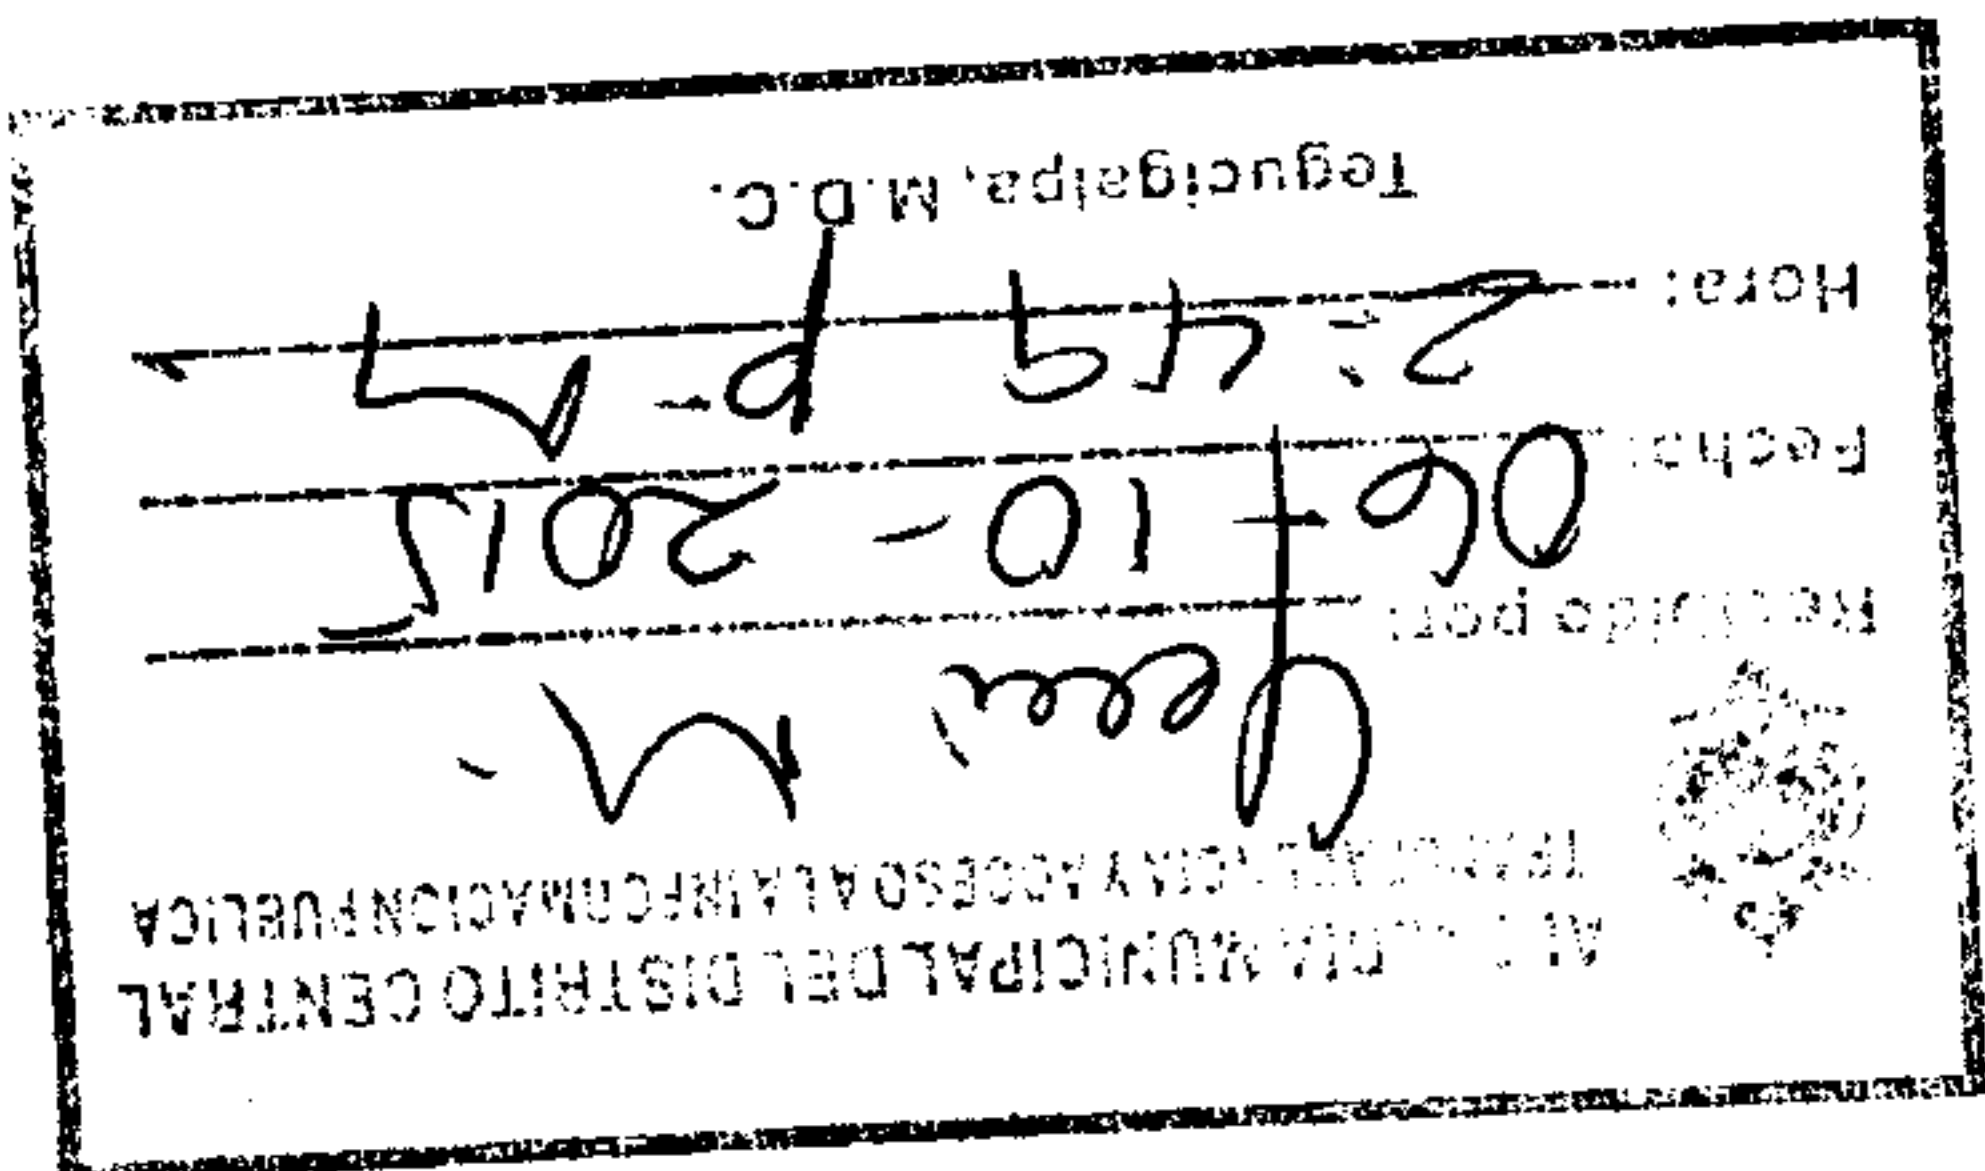 ALCALDIA MUNICIPAL DEL DISTRITO CENTRAL
TRANSPARENCIA Y ACCESO A LA INFORMACION PUBLICA
Recibido por:
Fecha: 06-10-2015
Hora: 2:49 p-m
Tegucigalpa, M.D.C.